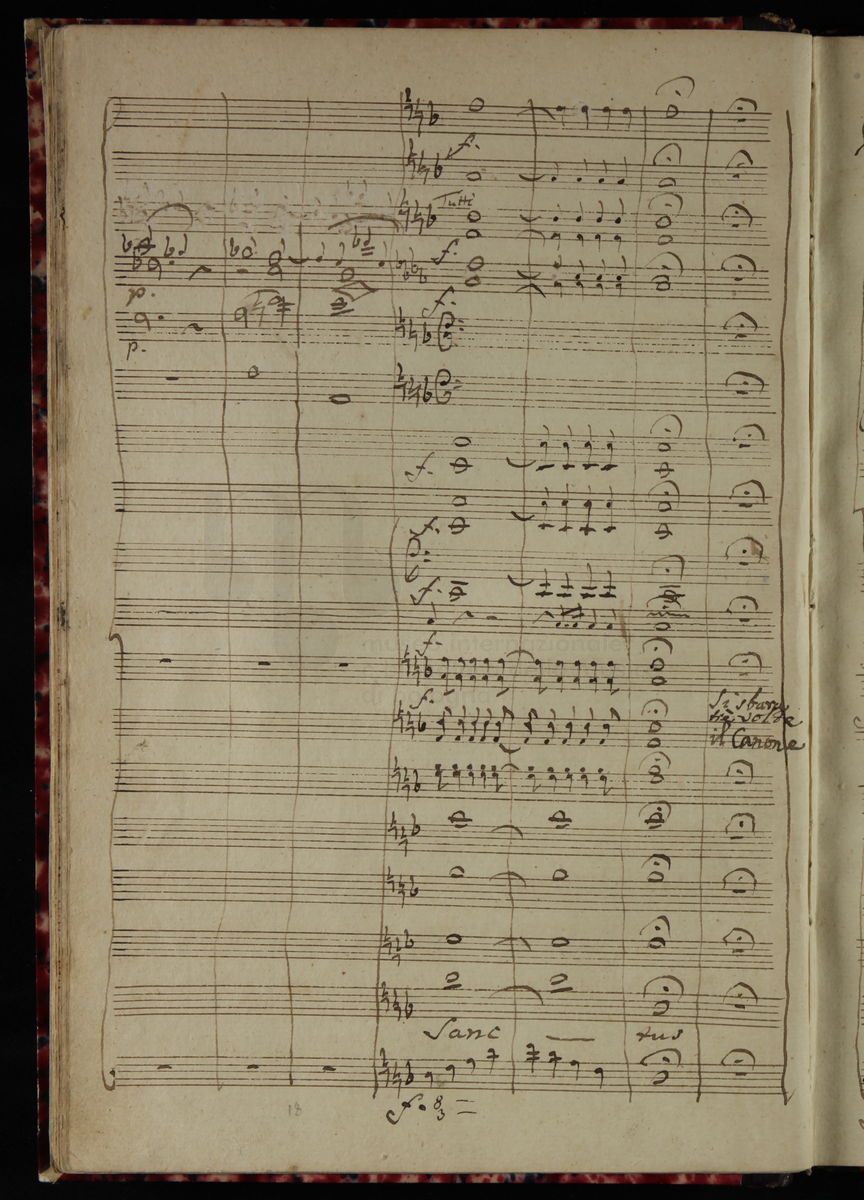 f.
Tutti
f.
p.
f.
p.
f.
f.
f.
f.
f.
Si
tre volte
il Canone
Sanc tus
f. 8
3
18